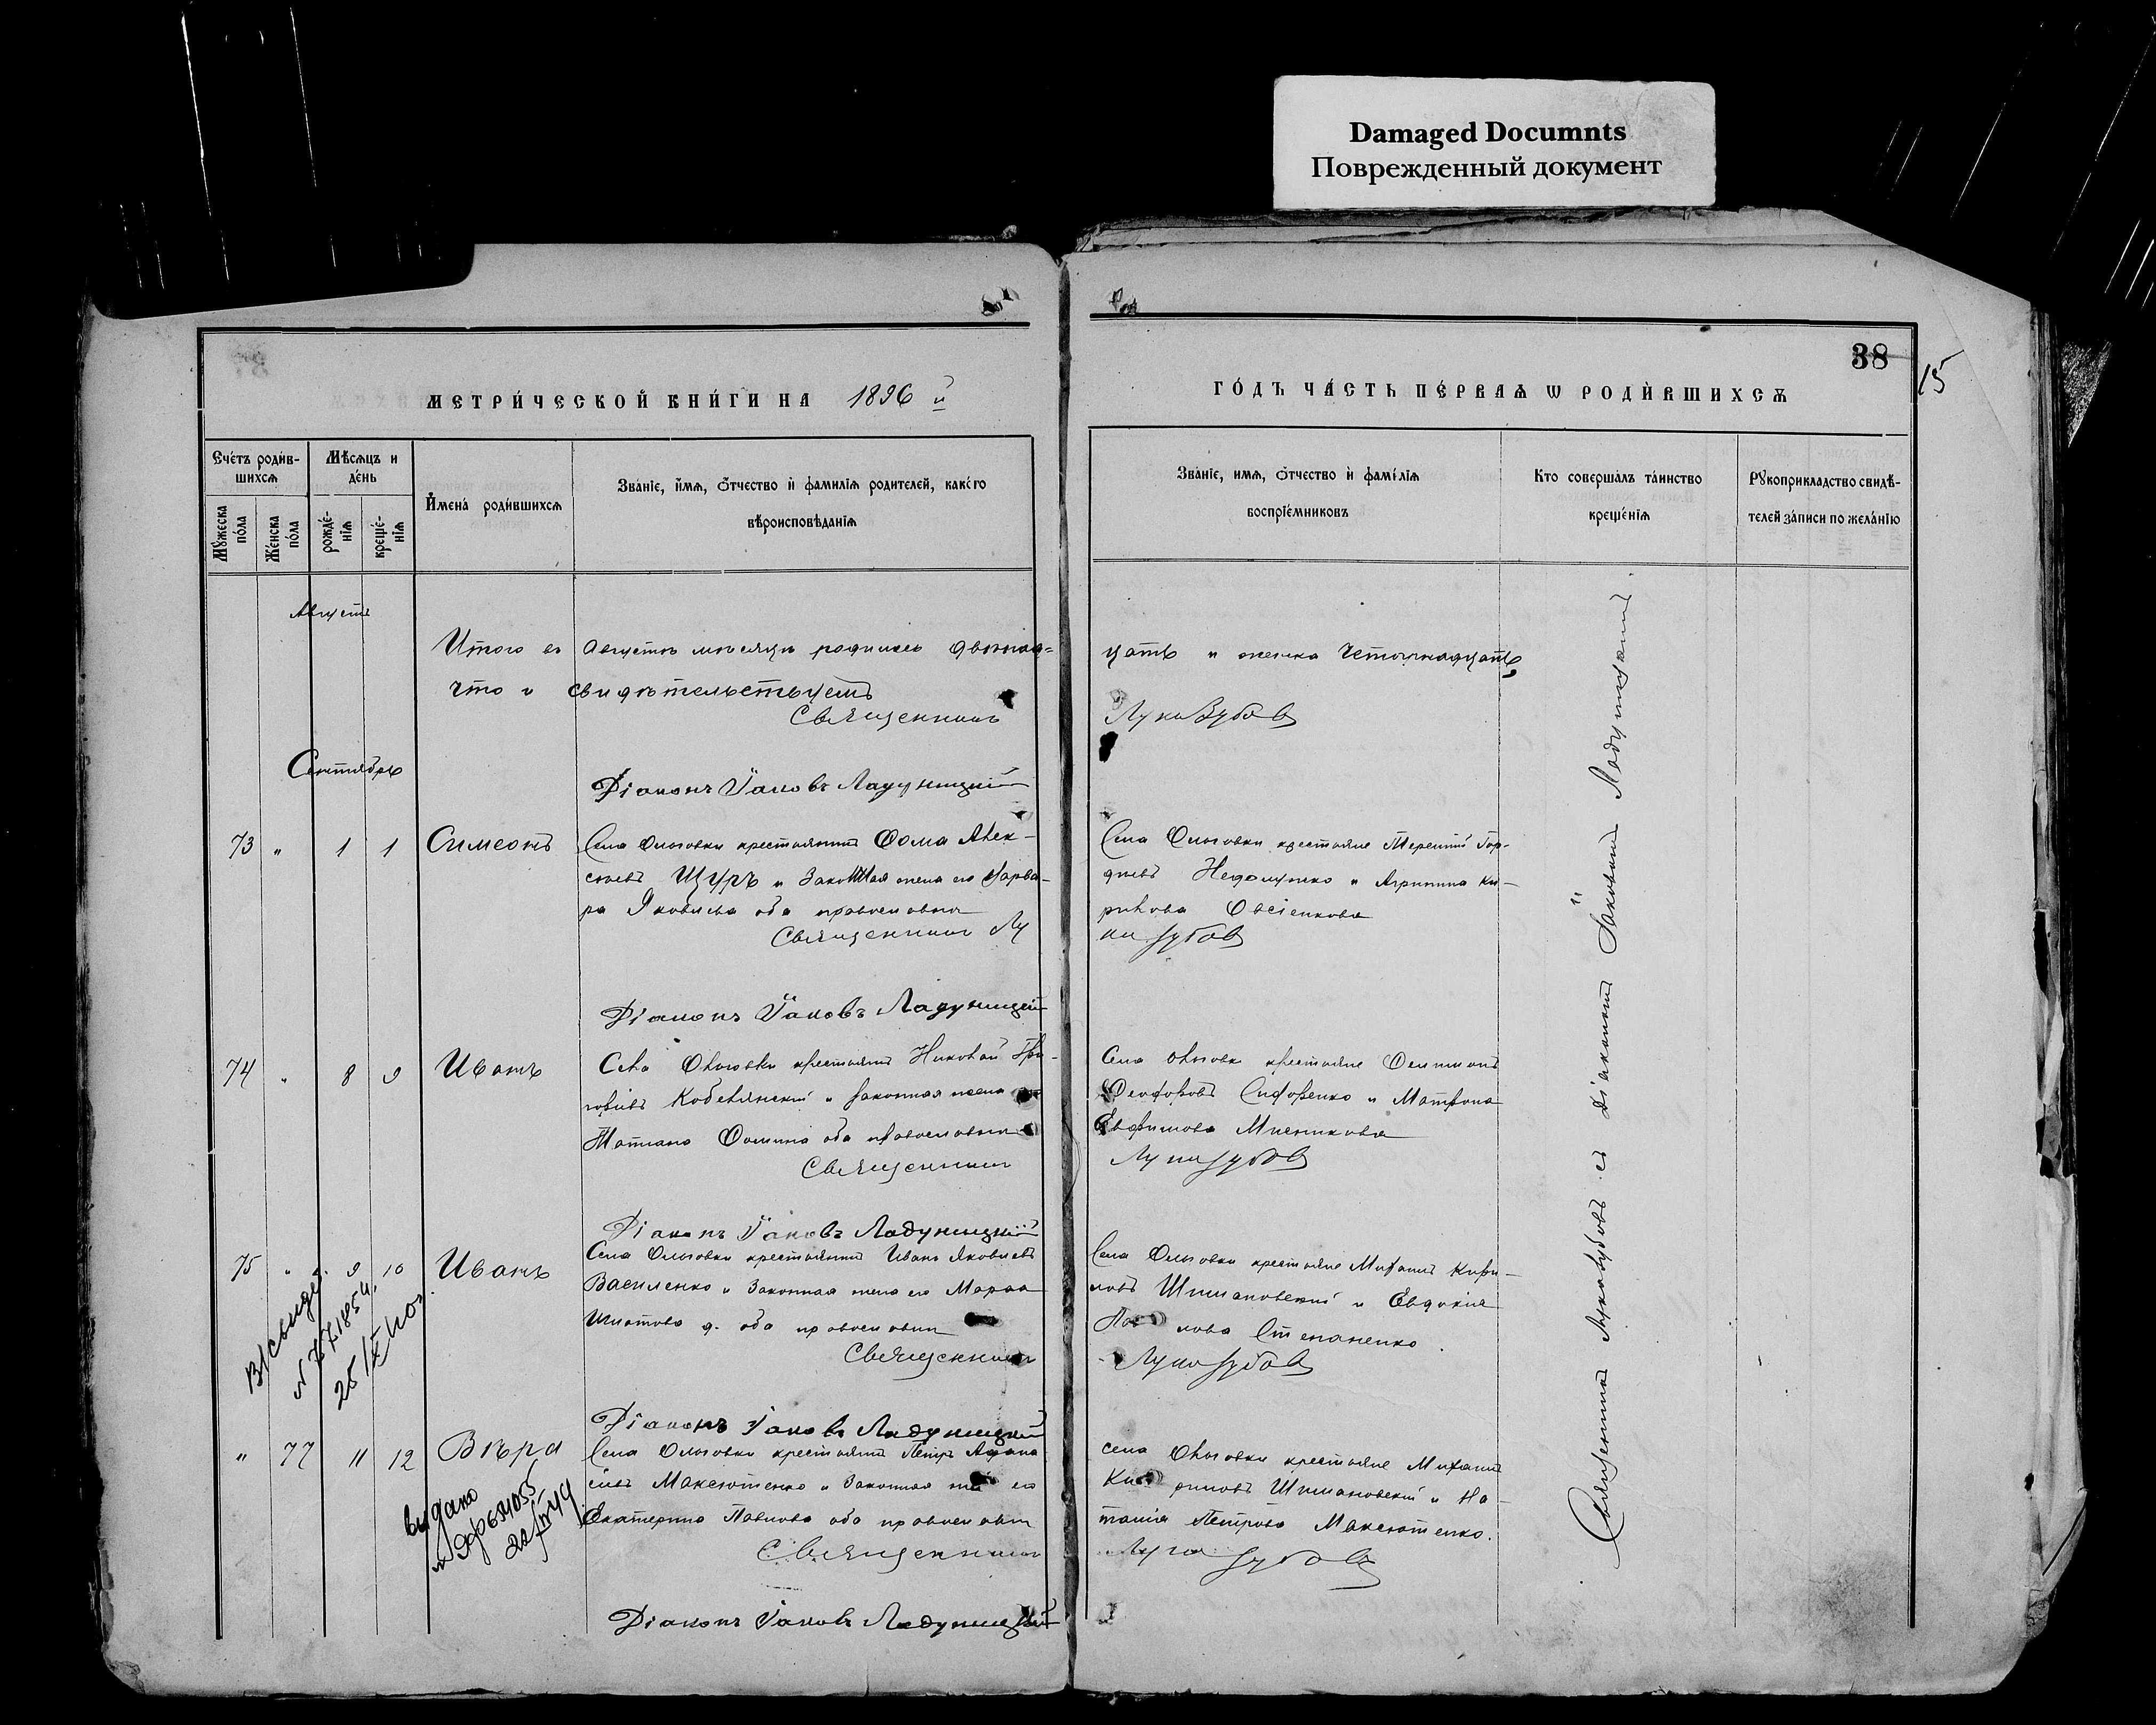 Damaged Documnts
Поврежденный документ
38
15
МЕТРИ́ЧЕСКОЙ КНИ́ГИ НА 1896 й
ГО́ДЪ ЧА́СТЬ ПЕ́РВАѦ Ѡ РОДИ́ВШИХСѦ
Счéтъ роди́в-
шихсѧ
Мѣ́сѧцъ и
де́нь
Мꙋ́жеска
по́ла
Же́нска
по́ла
рожде́-
нїѧ
креще́-
нїѧ
И҆мена̀ роди́вшихсѧ
Зва́нїе, и҆́мѧ, ѻ҆́тчество и҆ фами́лїѧ роди́телей, како́го
вѣроисповѣ́данїѧ
Зва́нїе, имѧ, ѻ҆́тчество и҆ фами́лїѧ
воспрїе́мниковъ
Кто соверша́лъ та́инство
креще́нїѧ
Рꙋкоприкладство свидѣ́-
телей за́писи по жела́нїю
Августъ
Итого въ Августѣ мѣсяцѣ родилось двѣнад-
цать и женска четырнадцать,
что и свидѣтельствуемъ
Священникъ Лука Зубовъ
Сентябрь
Діаконъ Іаковъ Ладухницкій
73 " 1 1 Симеонъ
Села Ольговки крестьянинъ Ѳома Алек-
сѣевъ Щуръ и законная жена его Варва-
ра Яковлева оба православны
Священникъ Лу
Села Ольговки крестьяне Терентій Гор-
дѣевъ и Агрипина Ки-
рилова Овсіенкова
ка Зубовъ
Діаконъ Іаковъ
74 " 8 9 Иванъ
Села Ольговки крестьянинъ Николай Гри-
горьевъ Кобелянскій и законная жена
Татіана Ѳомина оба православны
Священникъ
Села Ольговки крестьяне
Ѳеодоровъ Сидоренко и Матрона
Евфимова
Лука Зубовъ
Діаконъ Іаковъ
75 " 9 10 Иванъ
Села Ольговки крестьянинъ Иванъ Яковлевъ
Василенко и законная жена его Марѳа
оба православны
Священникъ
Села Ольговки крестьяне Михаилъ Кири-
ловъ Шимановскій и Евдокія
лова Степаненко.
Лука Зубовъ
Діаконъ Іаковъ
" 77 11 12 Вѣра
Села Ольговки крестьянинъ Петръ Афана-
сіевъ Максютенко и законная его
Екатерина Павлова оба православны
Священникъ
Села Ольговки крестьяне Михаилъ
Ки риловъ Шимановскій и На-
талія Петрова Максютенко.
Лука Зубовъ
видано
Діаконъ Іаковъ
Священникъ Лука Зубовъ съ діакономъ Іаковомъ